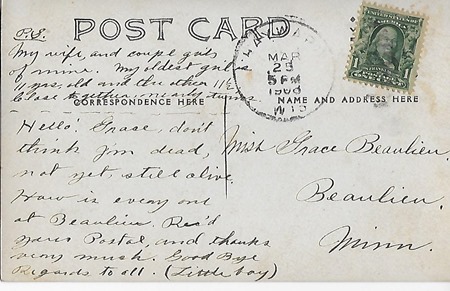 POST CARD
P.S.
My wife, and couple girls
of mine. My oldest girl is
11 yrs, old and the other 11½
Close
CORRESPONDENCE HERE
NAME AND ADDRESS HERE
MAR
25
5 PM
1908
WIS
Hello! Grase, don't
think I'm dead,
not yet, still alive.
How is every one
at Beaulieu. Rec'd
youre Postal, and thanks
very much. Good Bye
Regards to all. (Little boy)
Miss Grace Beaulieu.
Beaulieu.
Minn.